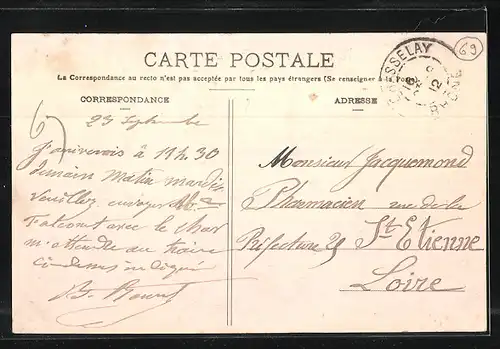 69
CARTE POSTALE
La Correspondance au recto n'est pas acceptée par tous les pays étrangers (Se renseigner à la
CORRESPONDANCE
ADRESSE
23 Septembre
J'arriverais à 11 h. 30
demain matin mardi
Veuillez
avec le char
m'attendre au
Monsieur Jacquemond
Pharmacien rue de la
Préfecture 25 St Etienne
Loire